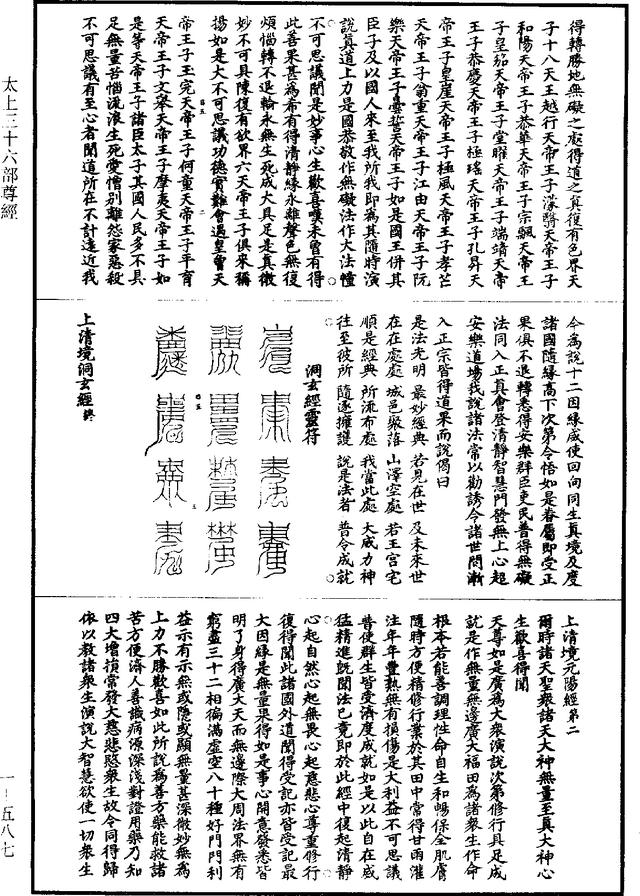 得轉勝地無礙之處得道之真復有色界天
子十八天王越行天帝王子濛翳天帝王子
和陽天帝王子恭華天帝王子宗飄天帝王
子皇笳天帝王子堂曜天帝王子端靖天帝
王子恭慶天帝王子極瑤天帝王子孔昇天
帝王子皇崖天帝王子極風天帝王子孝芒
天帝王子翁重天帝王子江由天帝王子阮
樂天帝王子曇誓天帝王子如是國王併其
臣子及以國人來至我所我即為其隨時演
說真道上力是國恭敬作無礙法作大法幢
不可思議聞是妙事心生歡喜嘆未曾有得
此善果甚為希有得清靜緣永離聲色無復
煩惱轉不退輪永無生死成大具足是真微
妙不可具陳復有欲界六天帝王子俱來稱
揚如是大不可思議功德實難會遇皇曾天
帝王子玉完天帝王子何童天帝王子平育
天帝王子文舉天帝王子摩夷天帝王子如
是等天帝王子諸臣太子其國人民多不具
足無量苦惱流浪生死愛憎別離怨家惡殺
不可思議有至心者聞道所在不計遠近我
今為說十二因緣咸使回向同生真境及度
諸國隨緣高下次第令悟如是眷屬即受正
果俱不退轉悉得安樂群臣吏民普得無礙
法同入正真會登清靜智慧門發無上心超
安樂道場我說諸法常以勸誘令諸世間漸
入正宗皆得道果而說偈曰
是法光明 最妙經典 若見在世 及未來世
在在處處 城邑聚落 山澤空處 若王宮宅
順是經典 所流布處 我當此處 大威力神
往至彼所 隨逐擁護 說是法者 普令成就
洞玄經靈符
上清境洞玄經終
上清境元陽經第二
爾時諸天聖眾諸天大神無量至真大神心
生歡喜得聞
天尊如是廣為大眾演說次第修行具足成
就是作無量無邊廣大福田為諸眾生作命
根本若能善調理性命自生和暢保全肌膚
隨時方便精修行業於其田中常得甘雨灌
注年年豐熟無有損傷是大利益不可思議
普使群生皆受濟度成就如是以此自在威
猛精進既聞法已竟即於此經中復起清靜
心起自然心起無畏心起慈悲心尊重修行
復得聞此諸國外道聞得受記亦皆受記最
大因緣是無量果得如是事心開意發悉皆
明了身得廣大天而無邊際大周法界無有
窮盡三十二相徧滿虛空八十種好門門利
益示有示無或隱或顯無量甚深微妙無為
上力不勝歡喜如此所說為善方藥能救諸
苦方便濟人善識病源深淺對證用藥乃知
四大增損常發大慈悲愍眾生故令同得歸
依以教諸眾生演說大智慧欲使一切眾生
太上三十六部尊經
一-五八七